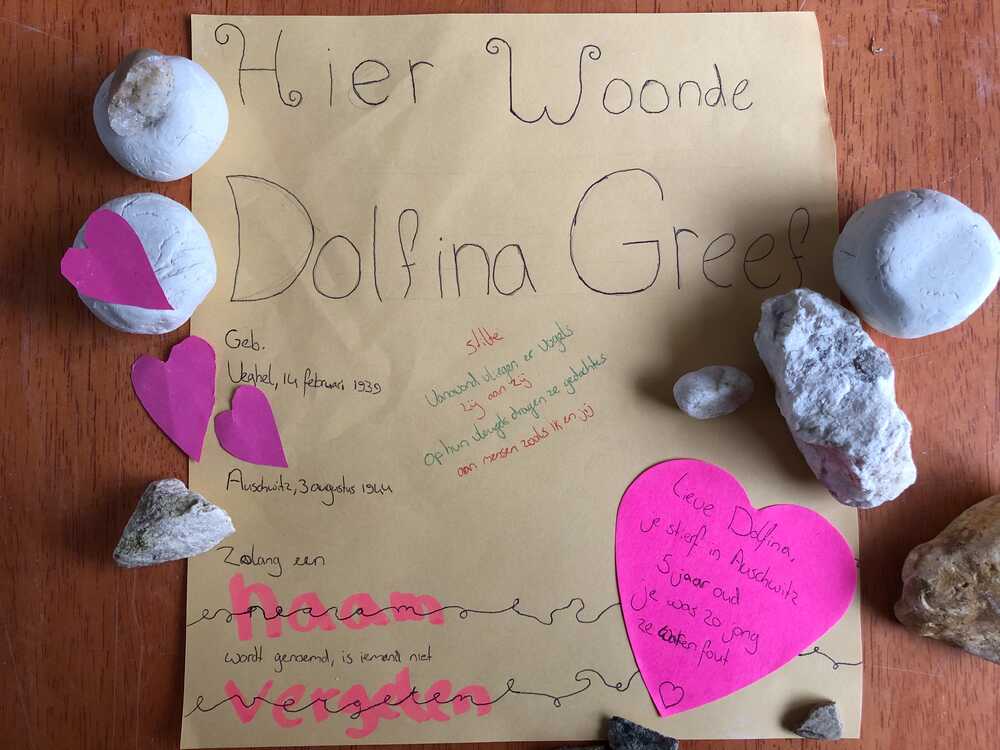 Hier Woonde
Dolfina Greef
Geb.
Veghel, 14 februari 1939
Auschwitz, 3 augustus 1944
stilte
Vanavond vliegen er vogels
zij aan zij
Op hun vleugels dragen ze gedachtes
aan mensen zoals ik en jij
Zolang een
naam
wordt genoemd, is iemand niet
vergeten
Lieve Dolfina,
je stierf in Auschwitz
5 jaar oud
je was zo jong
ze waren fout